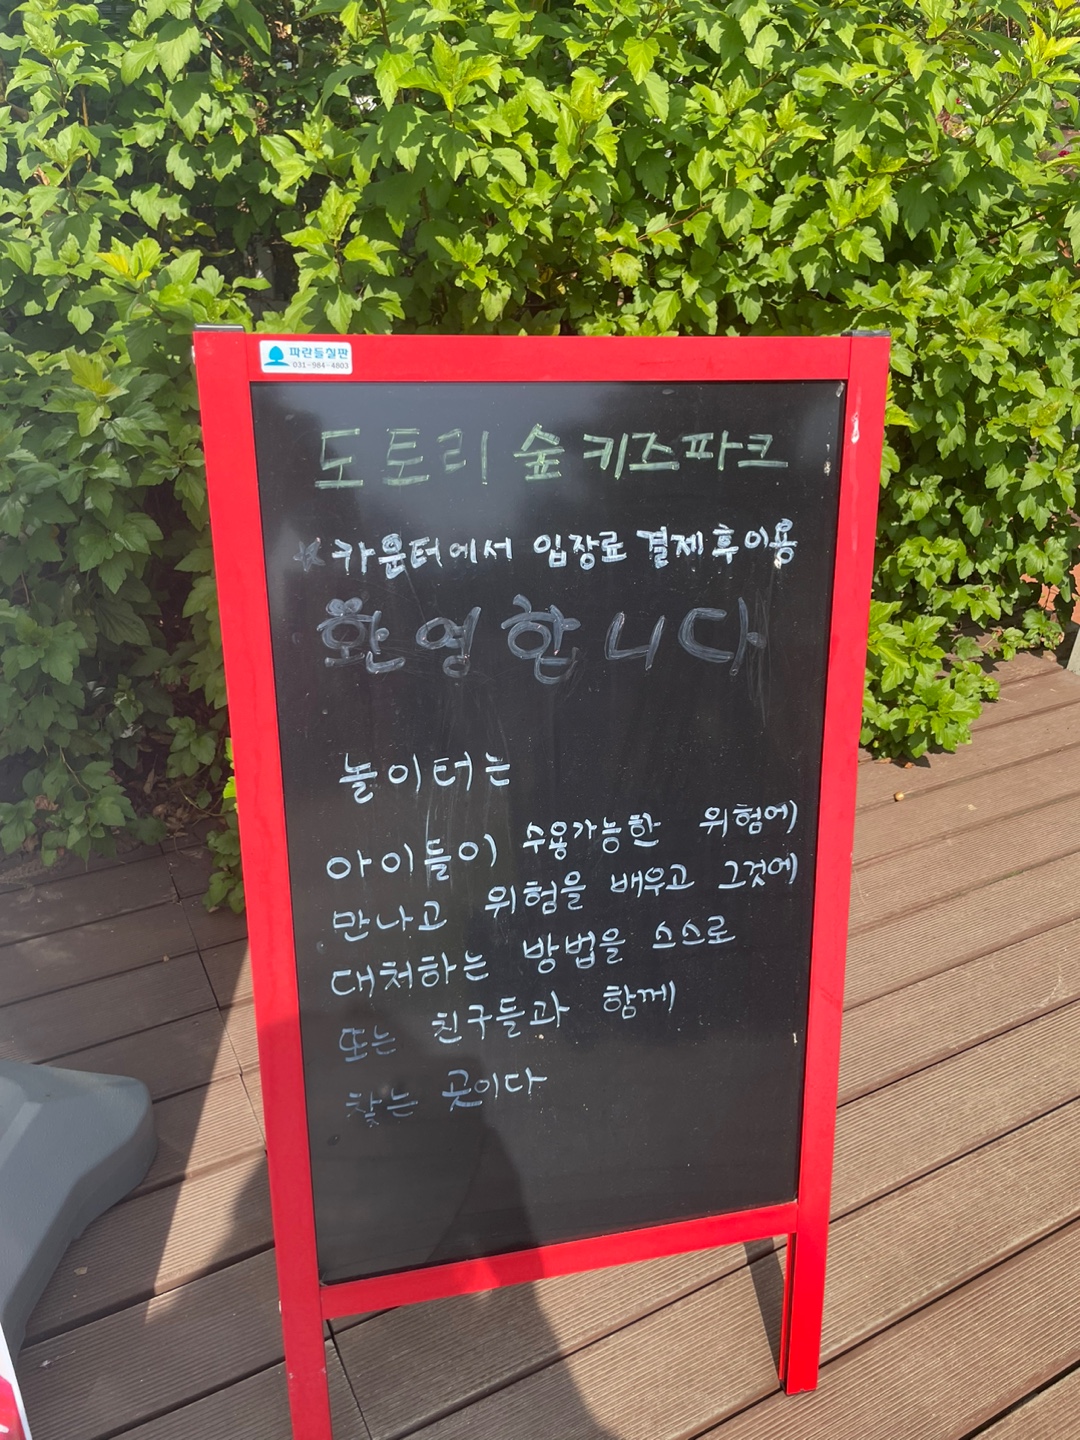 파란들칠판
031-984-4803
도토리 숲 키즈파크
* 카운터에서 입장료 결제 후 이용
환영합니다
놀이터는
아이들이 수용가능한 위험에
만나고 위험을 배우고 그것에
대처하는 방법을 스스로
또는 친구들과 함께
찾는 곳이다